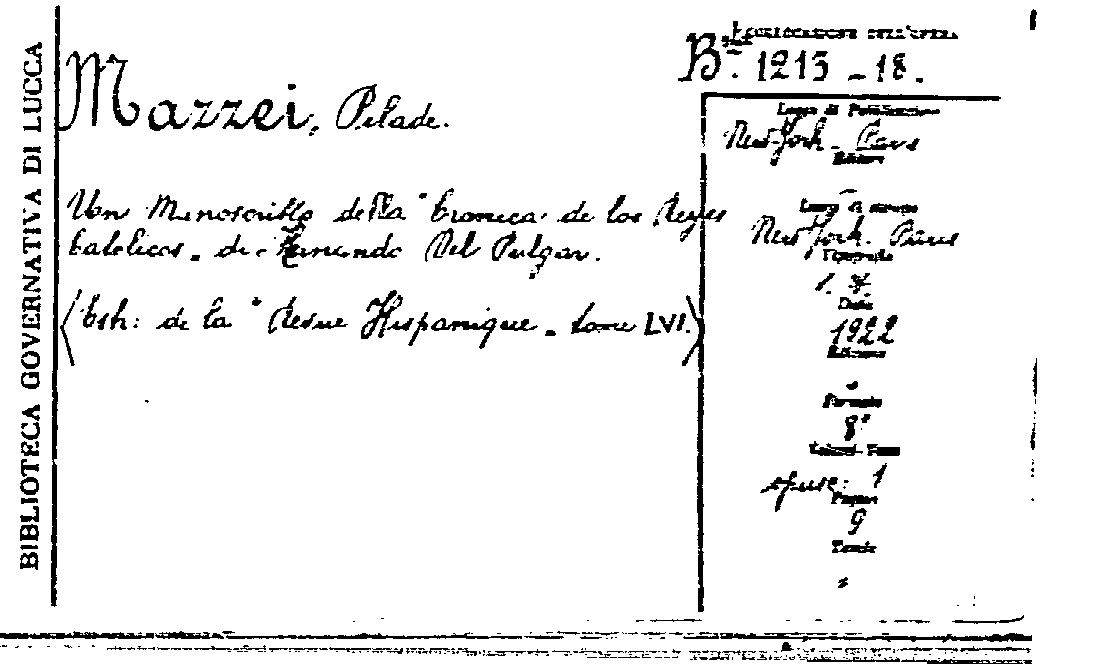 BIBLIOTECA GOVERNATIVA DI LUCCA
COLLOCAZIONE DELL'OPERA
B.ta 1215 - 18.
Mazzei, Pilade.
Un Manoscritto della "Cronica de los Reyes
Catolicos" de Hernando Del Pulgar.
(Estr: de la "Revue Hispanique" tome LVI.)
Luogo di Pubblicazione
New-York - Paris
Editore
-
Luogo di stampa
New York. Paris
Tipografia
s. t.
Data
1922
Edizione
-
Formato
8°
Volumi
opusc: 1
Pagine
9
Tavole
-